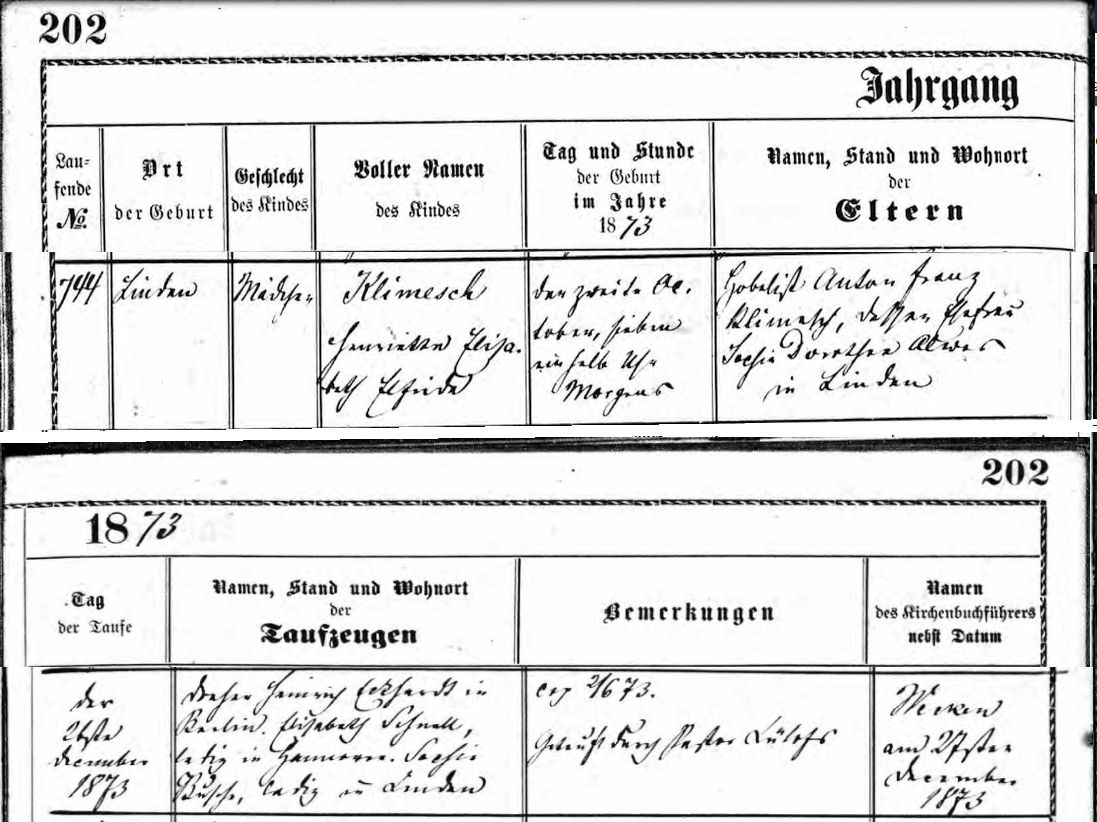 202
Jahrgang
Lau-
fende
№.
Ort
der Geburt
Geschlecht
des Kindes
Voller Namen
des Kindes
Tag und Stunde
der Geburt
im Jahre
1873
Namen, Stand und Wohnort
der
Eltern
744
Linden
Mädchen
Klimesch
Henriette Elisa-
beth Elfride
den zweiten Oc-
tober, sieben
ein halb Uhr
Morgens
Hobelist Anton Franz
Klimesch, dessen Ehefrau
Sophie Dorothee Alwes
in Linden
202
1873
Tag
der Taufe
Namen, Stand und Wohnort
der
Taufzeugen
Bemerkungen
Namen
des Kirchenbuchführers
nebst Datum
der
26ste
December
1873
Dreher Heinrich Eckhardt in
Berlin. Elisabeth Schnell,
ledig in Hannover. Sophie
Busche, ledig in Linden
cop 2/6 73.
Getauft durch Pastor Lülofs
am 27sten
December
1873